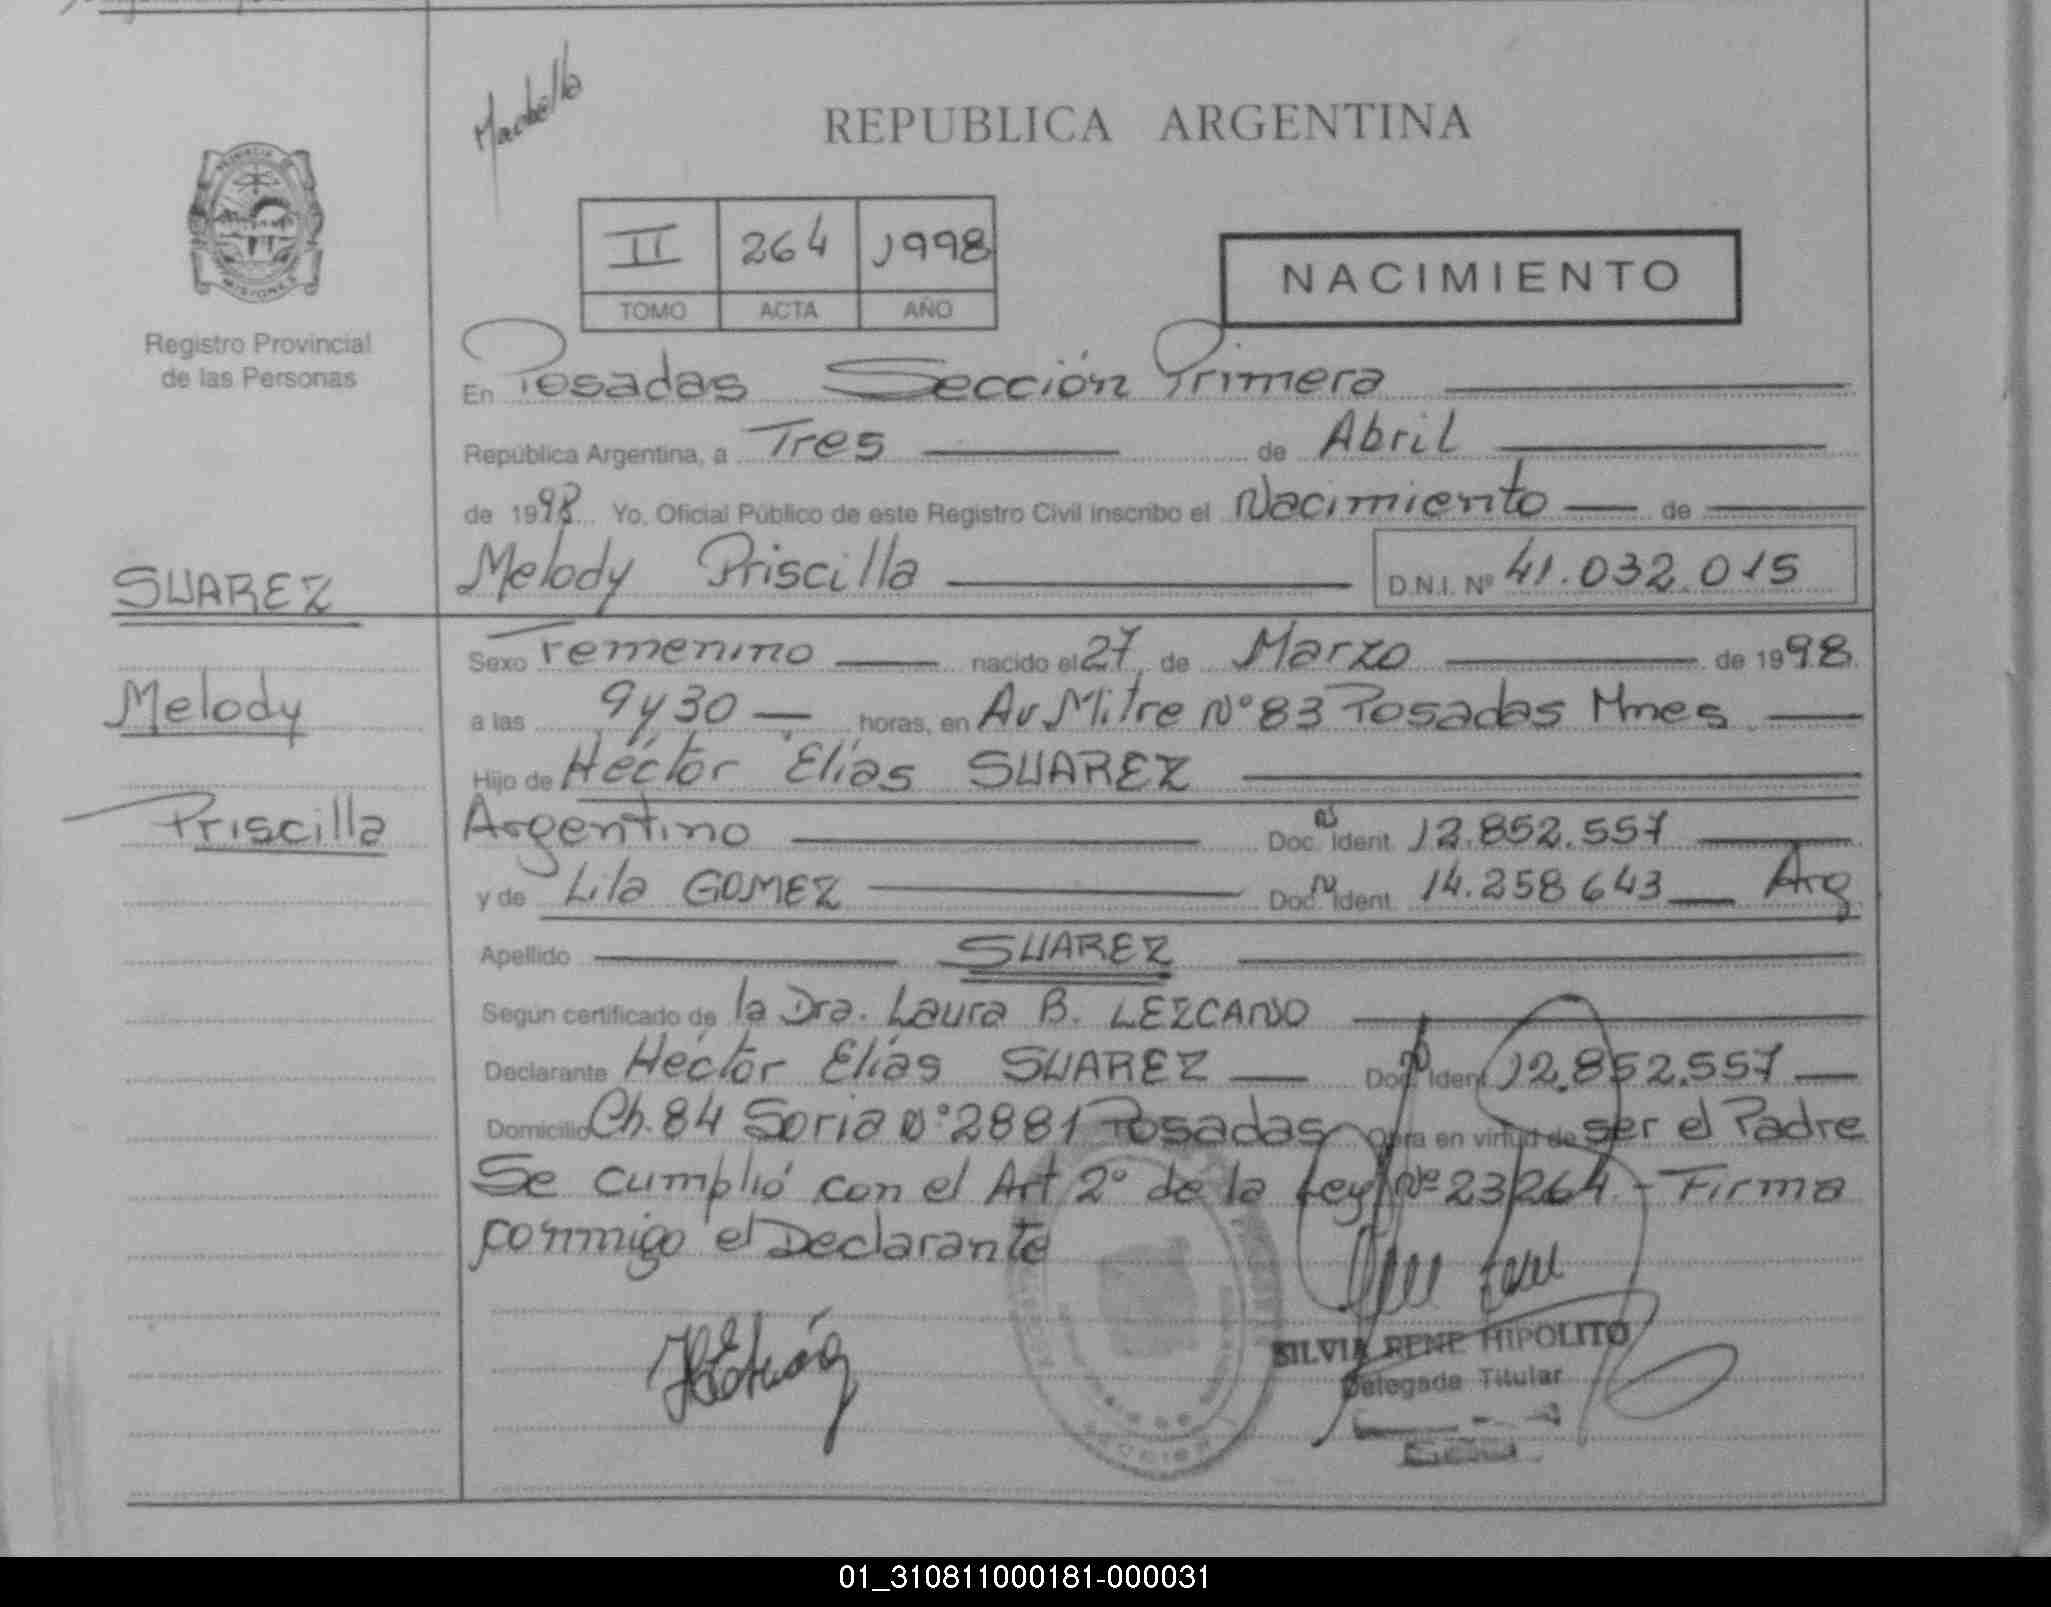 REPUBLICA ARGENTINA
II 264 1998
TOMO ACTA AÑO
NACIMIENTO
MISIONES
Registro Provincial
de las Personas
En Posadas Sección Primera
República Argentina, a Tres de Abril
de 1998 Yo, Oficial Público de este Registro Civil inscribo el Nacimiento de
Melody Priscilla D.N.I. Nº 41.032.015
SUAREZ
Melody
Priscilla
Sexo Femenino nacido el 27 de Marzo de 1998
a las 9 y 30 horas, en Av Mitre Nº 83 Posadas Mnes
Hijo de Héctor Elías SUAREZ
Argentino Doc. N Ident. 12.852.557
y de Lila GOMEZ Doc. N Ident. 14.258643 Arg
Apellido SUAREZ
Según certificado de la Dra. Laura B. LEZCANO
Declarante Héctor Elías SUAREZ Doc. N Ident. 12.852.557
Domicilio Ch. 84 Soria Nº 2881 Posadas Obra en virtud de ser el Padre
Se cumplió con el Art 2º de la Ley Nº 23264 - Firma
conmigo el Declarante
SILVIA RENE HIPOLITO
Delegada Titular
01_310811000181-000031